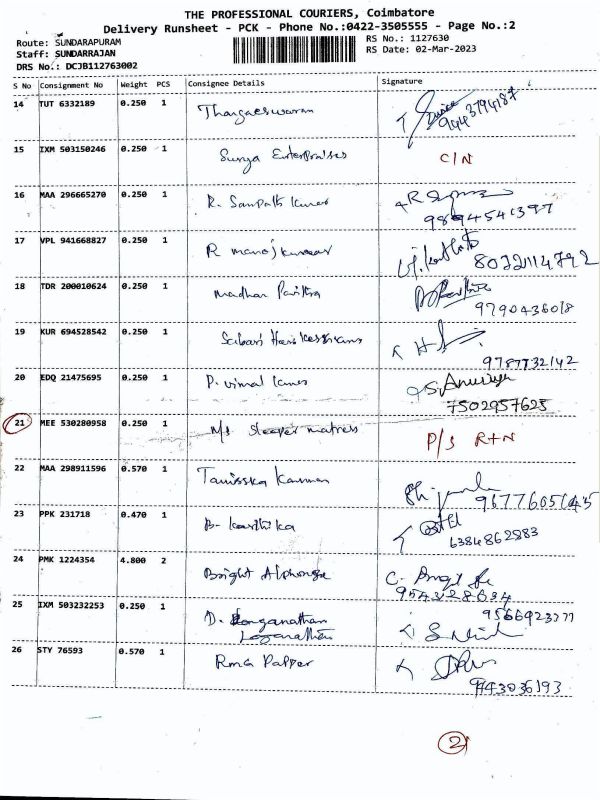 THE PROFESSIONAL COURIERS, Coimbatore
Delivery Runsheet - PCK - Phone No.:0422-3505555 - Page No.:2
Route: SUNDARAPURAM
Staff: SUNDARRAJAN
DRS No.: DCJB112763002
RS No.: 1127630
RS Date: 02-Mar-2023
S No Consignment No Weight PCS Consignee Details Signature
14 TUT 6332189 0.250 1 Thangaeswaran
9443794187
15 IXM 503150246 0.250 1 Surya Enterpraises C/N
16 MAA 296665270 0.250 1 R. Sampath kumar
9894541397
17 VPL 941668827 0.250 1 R manojkumar 8022114792
18 TDR 200010624 0.250 1 madhan Pavithra
9790436018
19 KUR 694528542 0.250 1 Sabari
9787732142
20 EDQ 21475695 0.250 1 P. vimal kumar
7502957625
21 MEE 530280958 0.250 1 M/s Sleeper matress P/S R+N
22 MAA 298911596 0.570 1 Tamisska
9677665645
23 PPK 231718 0.470 1 B- karthika
6384862883
24 PMK 1224354 4.800 2 Bright Alphonse
9543128634
25 IXM 503232253 0.250 1 D. 9566923777
Loganathan
26 STY 76593 0.570 1 RMG Papper
9443036193
2